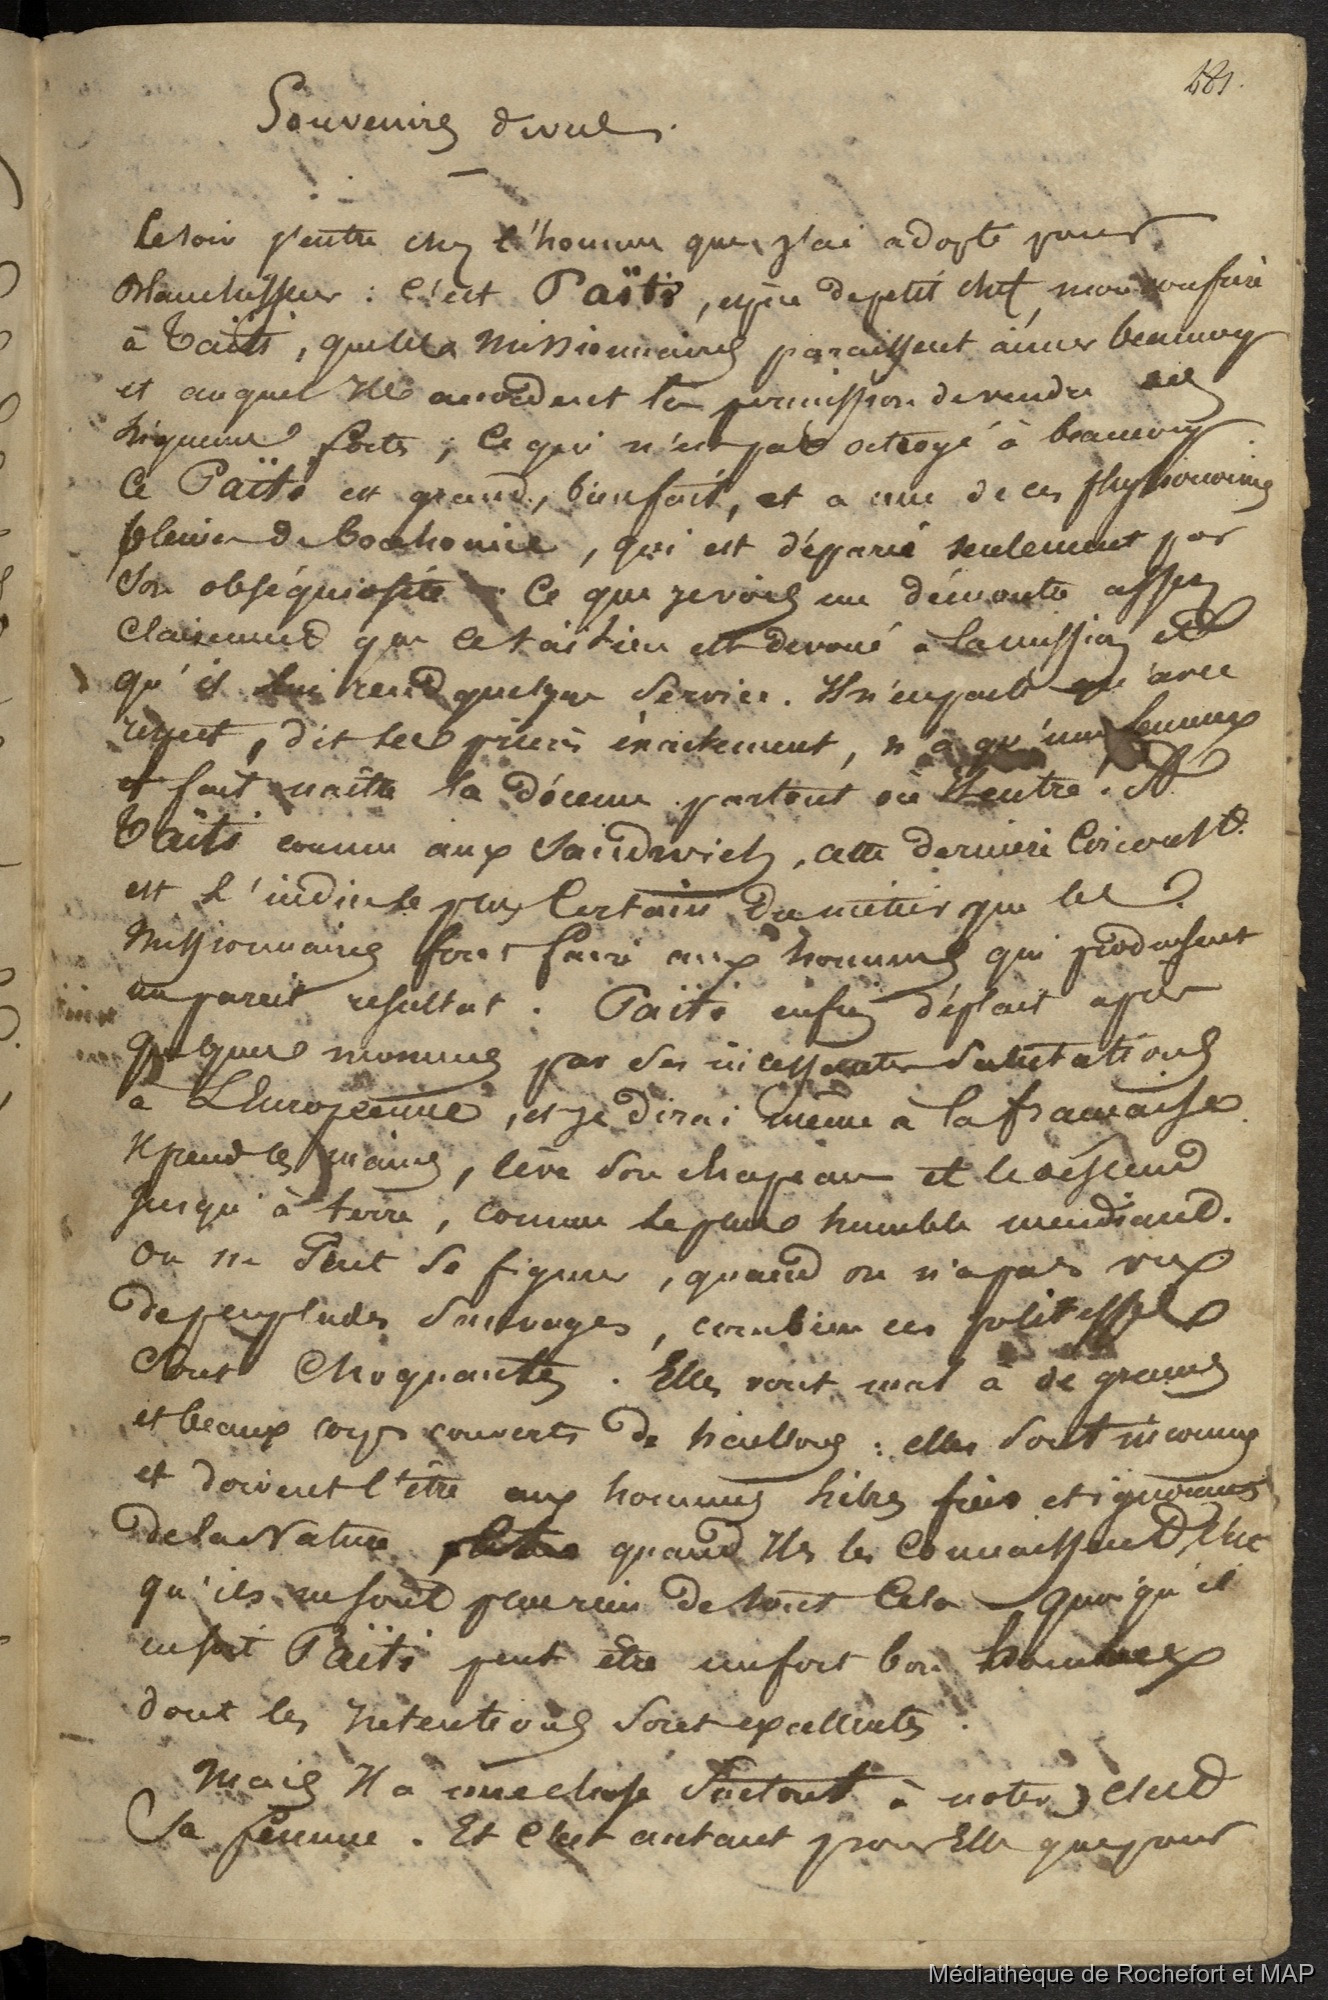 481.
Souvenirs divers.
Le soir j'entre chez l'homme que j'ai adopté pour
Blanchisseur : C'est Païti, espèce de petit chef, mon
à Taïti, que les Missionnaires paraissent aimer beaucoup
et auquel Ils accordent la permission de vendre des
liqueurs fortes, Ce qui n'est pas octroyé à beaucoup.
Ce Païti est grand, bien fait, et a une de ces physionomies
pleines de bonhomie, qui est déparié seulement par
Son obséquiosité. Ce que je vois me démontre assez
Clairement que ce taïtien est dévoué à la mission et
qu'il lui rend quelque Service. Il n'en parle qu'avec
respect, dit les prières exactement, n'a qu'une femme
et fait naître la décence partout où Il entre. A
Taïti comme aux Sandwich, cette dernière Circonst.
est l'indice le plus Certain du métier que les
Missionnaires font faire aux hommes qui produisent
un pareil résultat. Païti enfin déplait après
quelques momens par Ses incessantes Salutations
à L'Européenne, et je dirai même à la française.
Il prend les mains, lève Son chapeau et le descend
Jusqu'à terre, comme le plus humble mendiant.
On ne Peut Se figurer, quand on n'a pas vu
de peuplades Sauvages, combien ces politesses
Sont Choquantes. Elles vont mal à de grands
et beaux corps couverts de haillons : elles Sont inconnues
et doivent l'être aux hommes libres fiers et ignorants
de la Nature, quand Ils les Connaissent, c'est
qu'ils ne sont plus rien de tout Cela. Quoiqu'il
en soit Païti peut être un fort bon homme
dont les Intentions Sont excellentes.
Mais Il a une chose Surtout à noter, C'est
Sa femme. Et C'est autant pour Elle que pour
Médiathèque de Rochefort et MAP